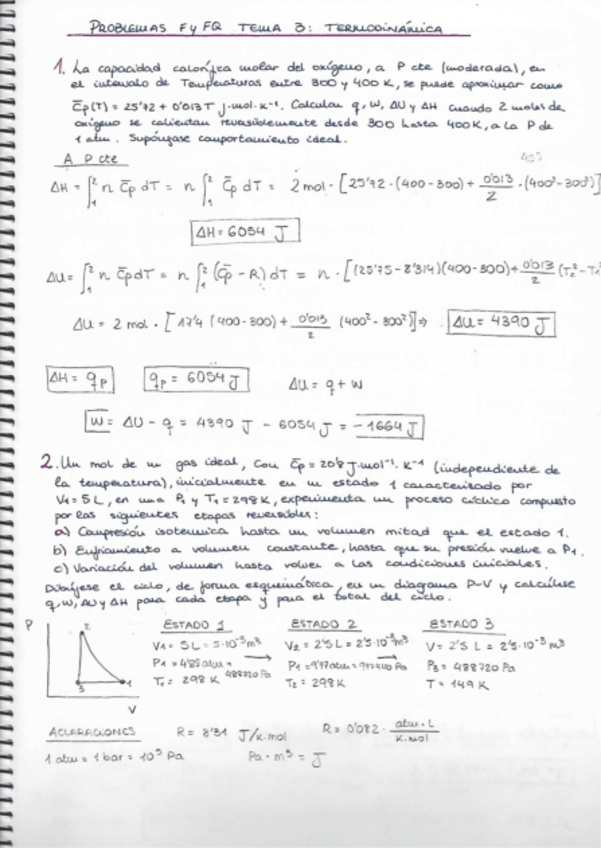 PROBLEMAS F y FQ TEMA 3: TERMODINÁMICA
1. La capacidad calorífica molar del oxígeno, a P cte (moderada), en
el intervalo de Temperaturas entre 300 y 400 K, se puede aproximar como
C̄p(T) = 25'72 + 0'013 T J·mol·K⁻¹. Calcular q, W, ΔU y ΔH cuando 2 moles de
oxígeno se calientan reversiblemente desde 300 hasta 400K, a la P de
1 atm. Supóngase comportamiento ideal.
A P cte
ΔH = ∫₁² n C̄p dT = n ∫₁² C̄p dT = 2 mol · [25'72 · (400 - 300) + 0'013/2 · (400² - 300²)]
ΔH = 6054 J
ΔU = ∫₁² n C̄p dT = n ∫₁² (C̄p - R) dT = n · [(25'75 - 8'314)(400 - 300) + 0'013/2 (T₂² - T₁²
ΔU = 2 mol · [17'4 (400 - 300) + 0'013/2 (400² - 300²)] ⇒ ΔU = 4390 J
ΔH = qp qp = 6054 J ΔU = q + W
W = ΔU - q = 4390 J - 6054 J = -1664 J
2. Un mol de un gas ideal, con C̄p = 20'8 J·mol⁻¹·K⁻¹ (independiente de
la temperatura), inicialmente en un estado 1 caracterizado por
V₁ = 5 L, en una P₁ y T₁ = 298 K, experimenta un proceso cíclico compuesto
por las siguientes etapas reversibles:
a) Compresión isotermica hasta un volumen mitad que el estado 1.
b) Enfriamiento a volumen constante, hasta que su presión vuelve a P₁.
c) Variación del volumen hasta volver a las condiciones iniciales.
Dibújese el ciclo, de forma esquemática, en un diagrama P-V y calcúlese
q, W, ΔU y ΔH para cada etapa y para el total del ciclo.
P 2 3 1 V
ESTADO 1 ESTADO 2 ESTADO 3
V₁ = 5L = 5·10⁻³ m³ V₂ = 2'5 L = 2'5·10⁻³ m³ V = 2'5 L = 2'5·10⁻³ m³
P₁ = 4'88 atm = 488720 Pa P₁ = 9'77 atm = 977400 Pa P₃ = 488720 Pa
T₁ = 298 K T₂ = 298 K T = 149 K
ACLARACIONES R = 8'31 J/K·mol R = 0'082 · atm·L/K·mol
1 atm = 1 bar = 10⁵ Pa Pa · m³ = J